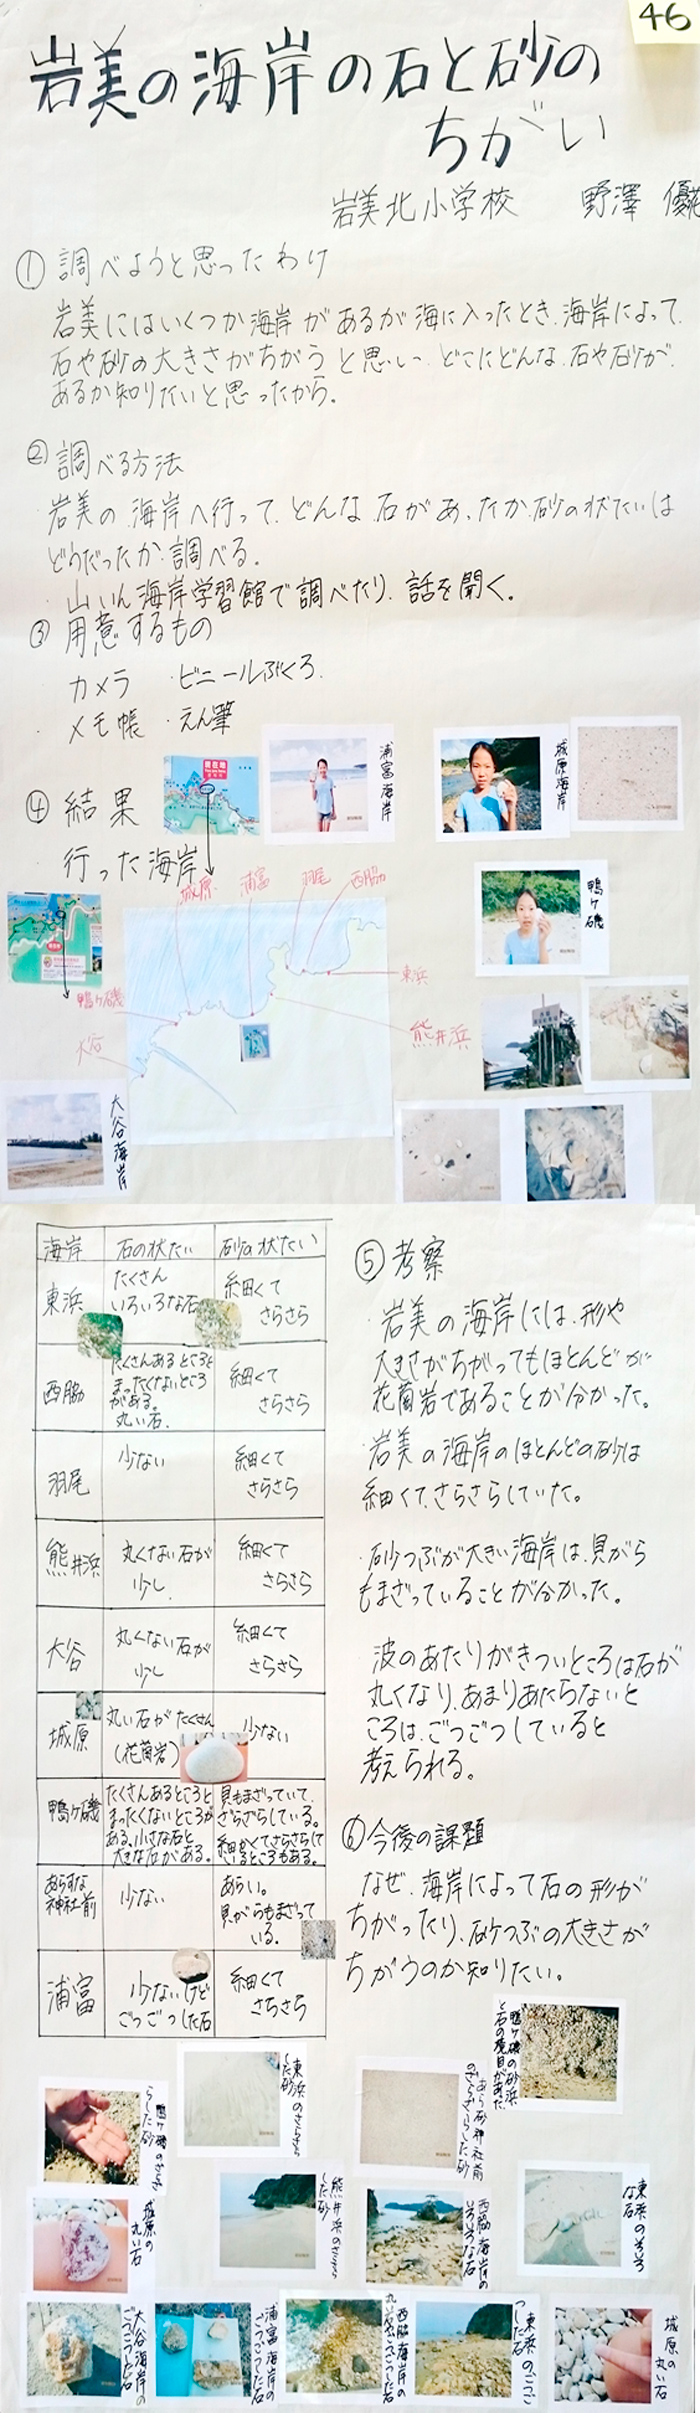 46
岩美の海岸の石と砂の
ちがい
岩美北小学校 野澤 優花
① 調べようと思ったわけ
岩美にはいくつか海岸があるが海に入ったとき、海岸によって、
石や砂の大きさがちがうと思い、どこにどんな石や砂が、
あるか知りたいと思ったから。
② 調べる方法
・岩美の海岸へ行って、どんな石があったか、砂の状たいは
どうだったか調べる。
・山いん海岸学習館で調べたり、話を聞く。
③ 用意するもの
・カメラ ・ビニールぶくろ
・メモ帳 ・えん筆
④ 結果
行った海岸
現在地
浦富海岸
城原海岸
鴨ヶ磯
城原
浦富
羽尾
西脇
東浜
熊井浜
鴨ヶ磯
大谷
大谷海岸
海岸 石の状たい 砂の状たい
東浜 たくさん いろいろな石 細くて さらさら
西脇 たくさんあるところと まったくないところがある。 丸い石。 細くて さらさら
羽尾 少ない 細くて さらさら
熊井浜 丸くない石が 少し 細くて さらさら
大谷 丸くない石が 少し 細くて さらさら
城原 丸い石がたくさん (花崗岩) 少ない
鴨ヶ磯 たくさんあるところと まったくないところがある、小さな石と 大きな石がある。 貝もまざっていて、 ざらざらしている。 細かくてさらさらして いるところもある。
あらすな神社前 少ない あらい。 貝がらもまざって いる。
浦富 少ないけど ごつごつした石 細くて さらさら
⑤ 考察
・岩美の海岸には、形や
大きさがちがってもほとんどが
花崗岩であることが分かった。
・岩美の海岸のほとんどの砂は
細くて、さらさらしていた。
・砂つぶが大きい海岸は、貝がら
もまざっていることが分かった。
・波のあたりがきついところは石が
丸くなり、あまりあたらないと
ころは、ごつごつしていると
考えられる。
⑥ 今後の課題
なぜ、海岸によって石の形が
ちがったり、砂つぶの大きさが
ちがうのか知りたい。
鴨ヶ磯の砂浜
と石の境目があった
東浜のさらさら
した砂
あら砂神社前
のざらざらした砂
鴨ヶ磯のさら
らした砂
熊井浜の
した砂
西脇海岸の
いろいろな石
東浜の
な石
城原の
丸い石
大谷海岸の
ごつごつした石
浦富海岸の
ごつごつした石
西脇海岸の
東浜のごつご
つした石
城原の
丸い石